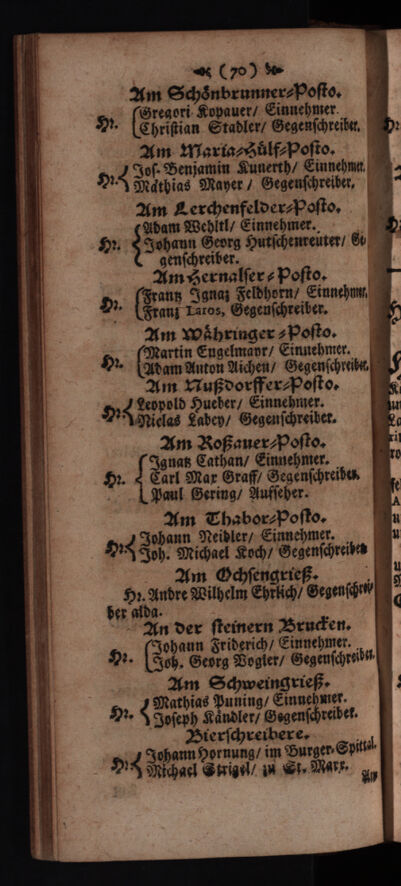 (70)
Am Schönbrunner-Posto.
Gregori Kopauer/ Einnehmer.
Hr.
Christian Stadler/ Gegenschreiber.
Am Maria-Hülf-Posto.
Jos. Benjamin Kunerth/ Einnehmer.
Hr.
Mathias Mayer/ Gegenschreiber.
Am Lerchenfelder-Posto.
Adam Wehltl/ Einnehmer.
Hr. Johann Georg Hutschenreuter/ Ge-
genschreiber.
Am Hernalser-Posto.
Frantz Ignaz Feldhorn/ Einnehmer.
Hr.
Franz Taros, Gegenschreiber.
Am Währinger-Posto.
Martin Engelmayr/ Einnehmer.
Hr.
Adam Anton Aichen/ Gegenschreiber.
Am Nußdorffer-Posto.
Leopold Hueber/ Einnehmer.
Hr.
Niclas Labey/ Gegenschreiber.
Am Roßauer-Posto.
Ignatz Cathan/ Einnehmer.
Hr. Carl Max Graff/ Gegenschreiber.
Paul Gering/ Aufseher.
Am Thabor-Posto.
Johann Neidler/ Einnehmer.
Hr.
Joh. Michael Koch/ Gegenschreiber
Am Ochsengrieß.
Hr. Andre Wilhelm Ehrlich/ Gegenschrei-
ber alda.
An der steinern Brucken.
Johann Friderich/ Einnehmer.
Hr.
Joh. Georg Vogler/ Gegenschreiber.
Am Schweingrieß.
Mathias Puning/ Einnehmer.
Hr.
Joseph Kändler/ Gegenschreiber.
Bierschreibere.
Johann Hornung/ im Burger-Spittal.
Hr.
Michael Strigel/ zu St. Marx.
Am